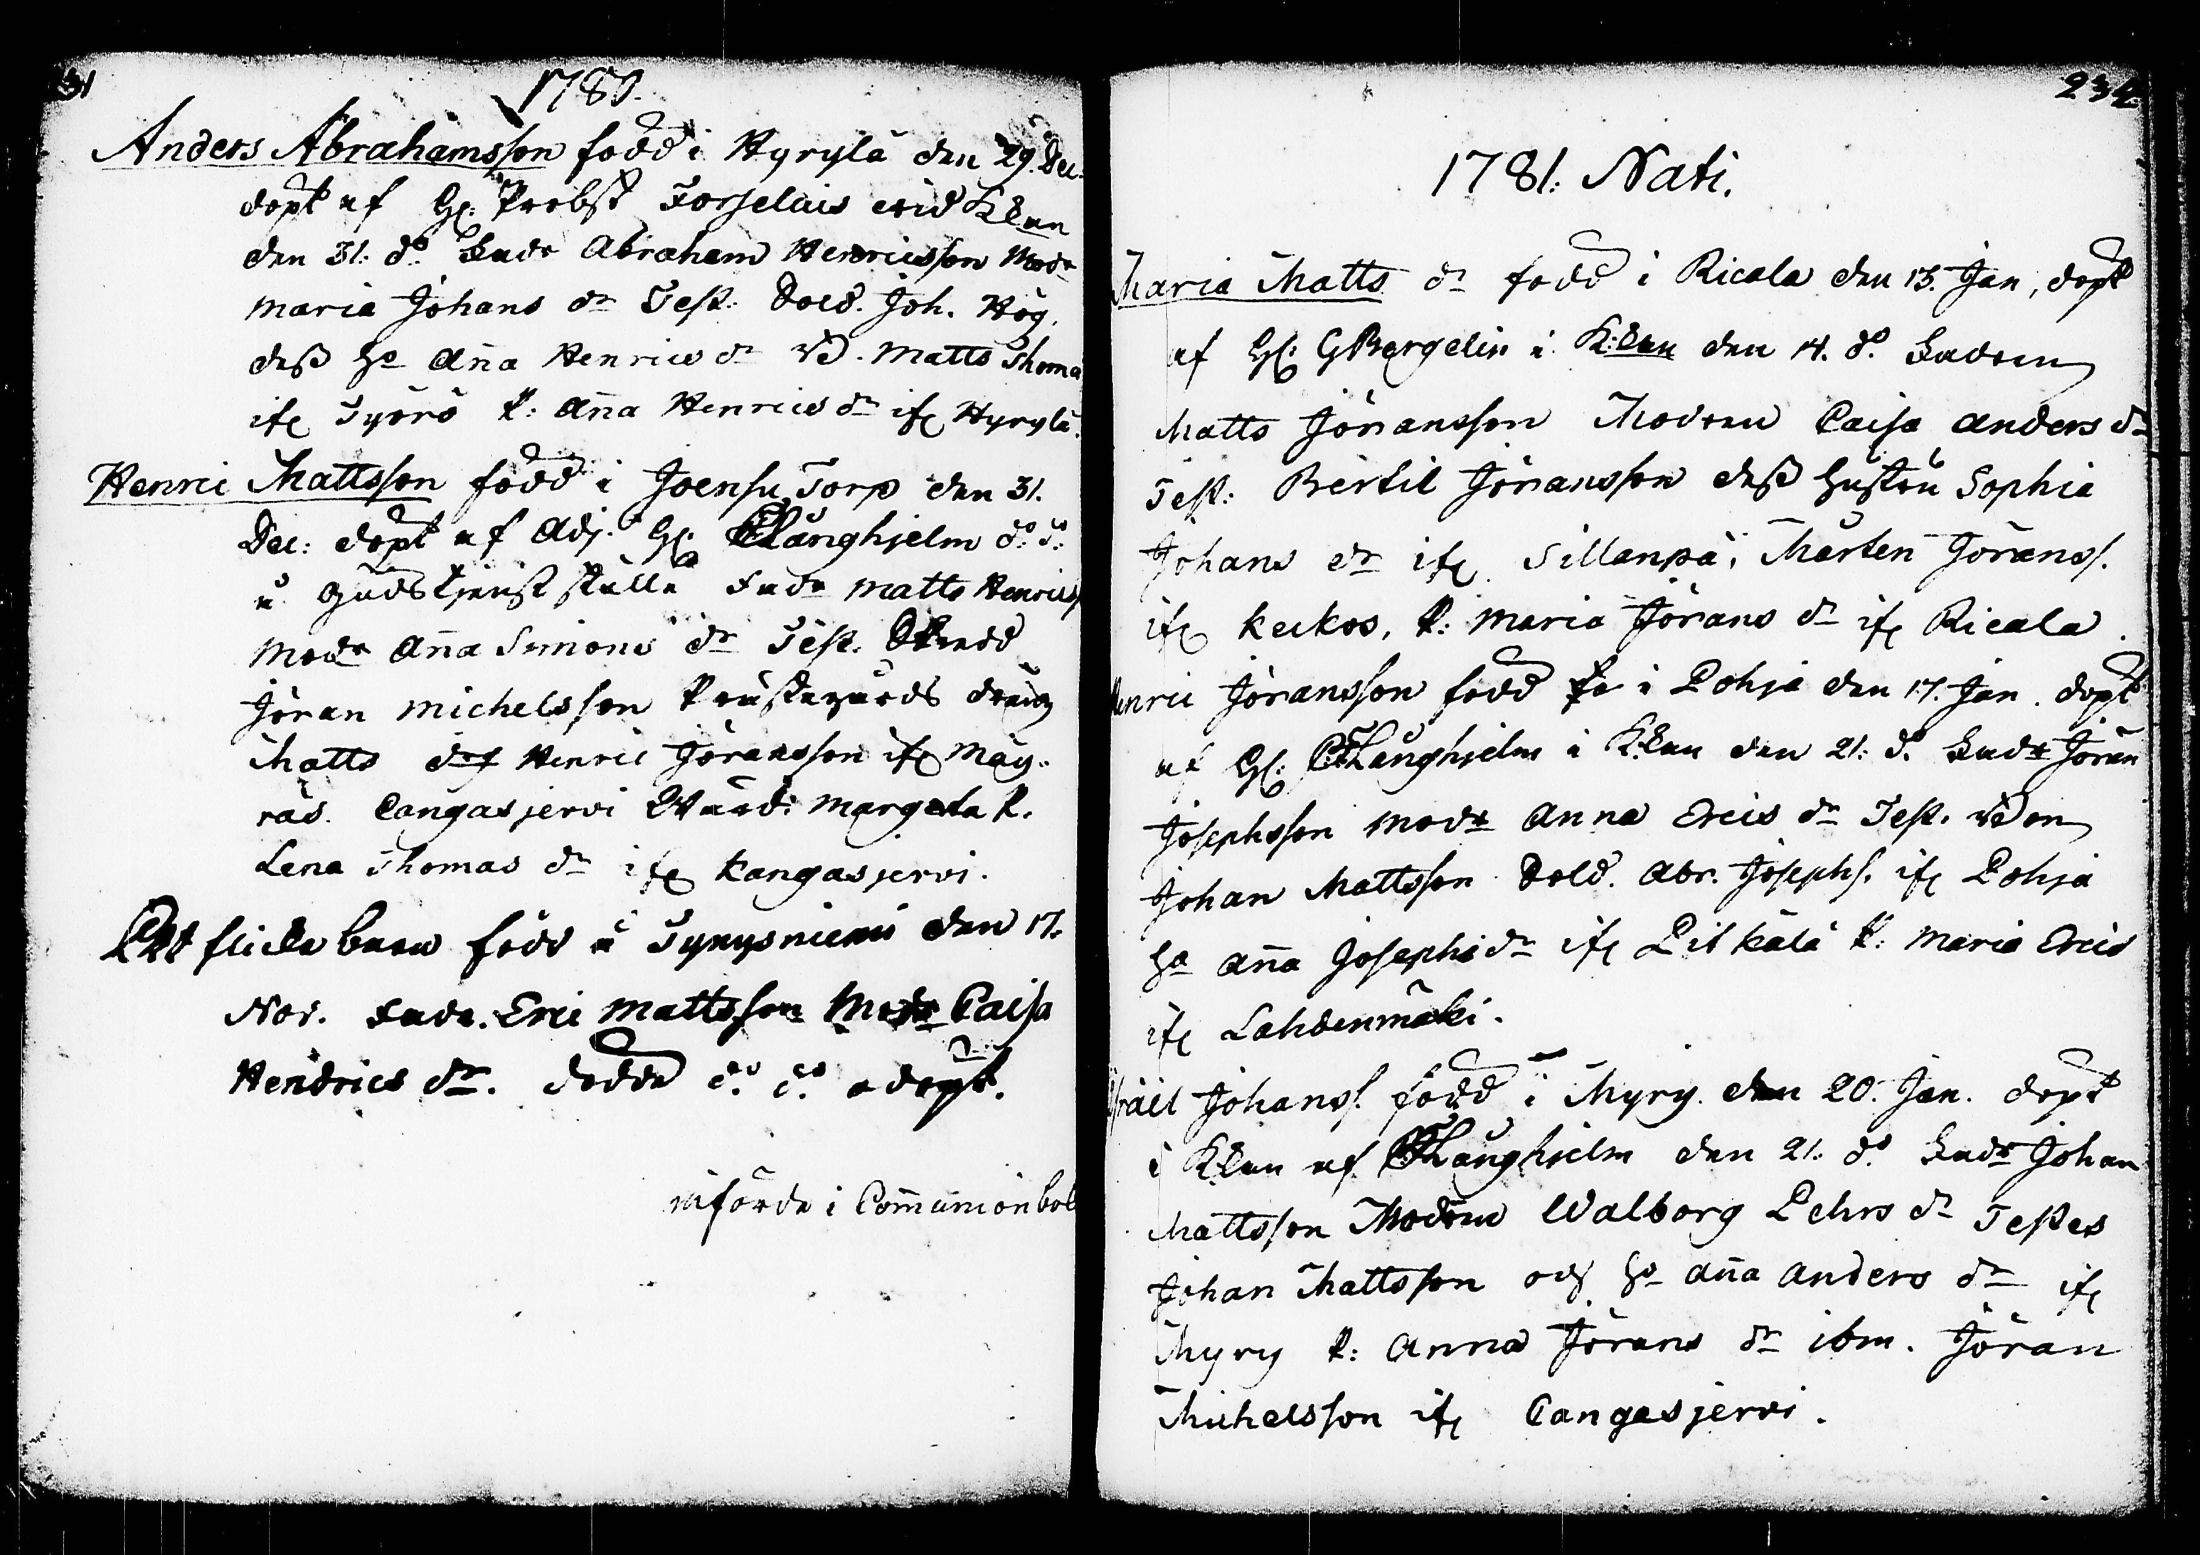 31
1780.
Anders Abrahamsson född i Hyrylä den 29. Dec.
döpt af H: Probst Forselius wid Kkan
den 31. do. Fadr Abraham Henricsson Modr
Maria Johans dr Test. Sold. Joh. Hög,
dess ho Anna Henrics dr Matts Thoma
ifr Työrö P: Anna Henrics dr ifr Hyrylä.
Henric Mattsson född i Joensu Torp den 31.
Dec: döpt af Adj. H: Långhjelm do. do.
å Gudstjenst ställe Fadr Matts Henrics
Modr Anna Simons dr Test.
Jöran Michelsson Prästegårds dräng
Matts Henric Jöransson ifr Mäy-
räs. Cangasjervi Margeta P.
Lena Thomas dr ifr Kangasjervi.
Ett flicke barn född i Tynysniemi den 17.
Nov. Fadr. Eric Mattsson Modr Caisa
Hendrics dr. dödde do. do odöpt.
införde i Communionbok
234
1781. Nati.
Maria Matts dr född i Ricala den 13. Jan, döpt
af H: GBergelin i K:kan den 14. do. Fadren
Matts Jöransson Modren Caisa Anders dr
Test: Bertil Jöransson dess hustru Sophia
Johans dr ifr Sillanpä, Mårten Jörans.
ifr Keckos, P: Maria Jörans dr ifr Ricala.
Henric Jöransson född i Pohja den 17. Jan. döpt
af H: Långhjelm i K:kan den 21. do. Fadr Jöran
Josephsson Modr Anna Erics dr Test.
Johan Mattsson Sold. Abr. Josephs. ifr Pohja
ho Anna Josephs dr ifr Pitkälä P: Maria Erics
ifr Lahdenmäki.
Israel Johans. född i Myry den 20. Jan. döpt
i Kkan af Långhjelm den 21. do. Fadr Johan
Mattsson Modren Walborg Pehrs dr Testes
Johan Mattsson och ho Anna Anders dr ifr
Myry P: Anna Jörans dr ibm. Jöran
Michelsson ifr Cangasjervi.